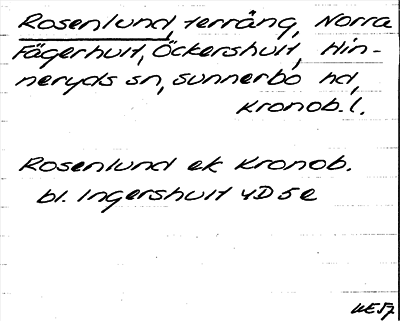 Rosenlund, terräng, Norra
Fägerhult, Öckershult, Hin-
neryds sn, Sunnerbo hd,
Kronob. l.
Rosenlund ek Kronob.
bl. Ingershult 4D5e